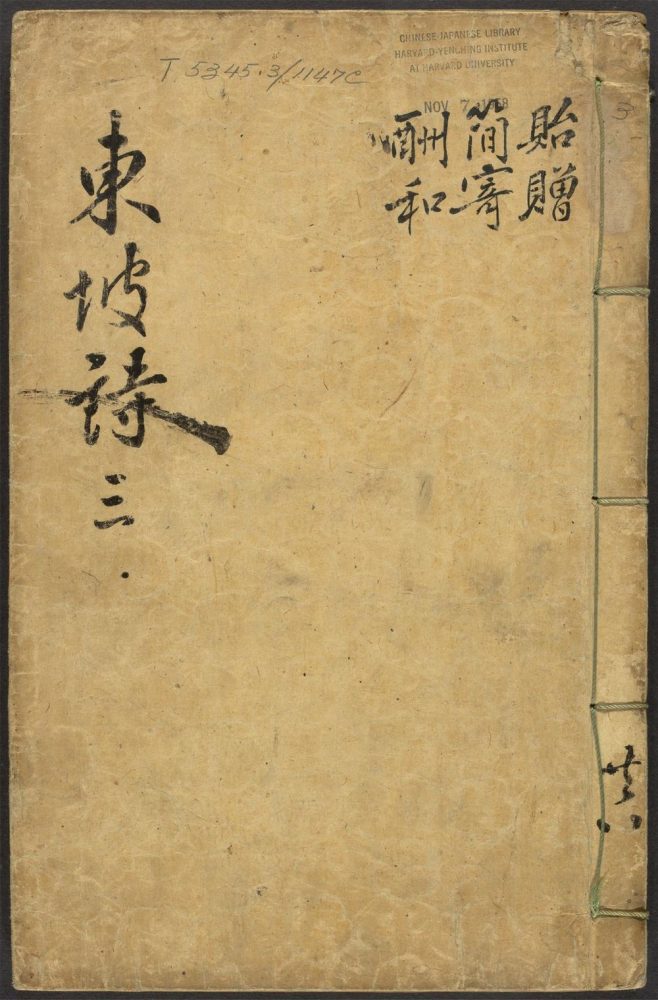 CHINESE-JAPANESE LIBRARY
HARVARD-YENCHING INSTITUTE
AT HARVARD UNIVERSITY
T 5345.3/1147C
NOV 7
貽贈
簡寄
酬和
東坡詩三